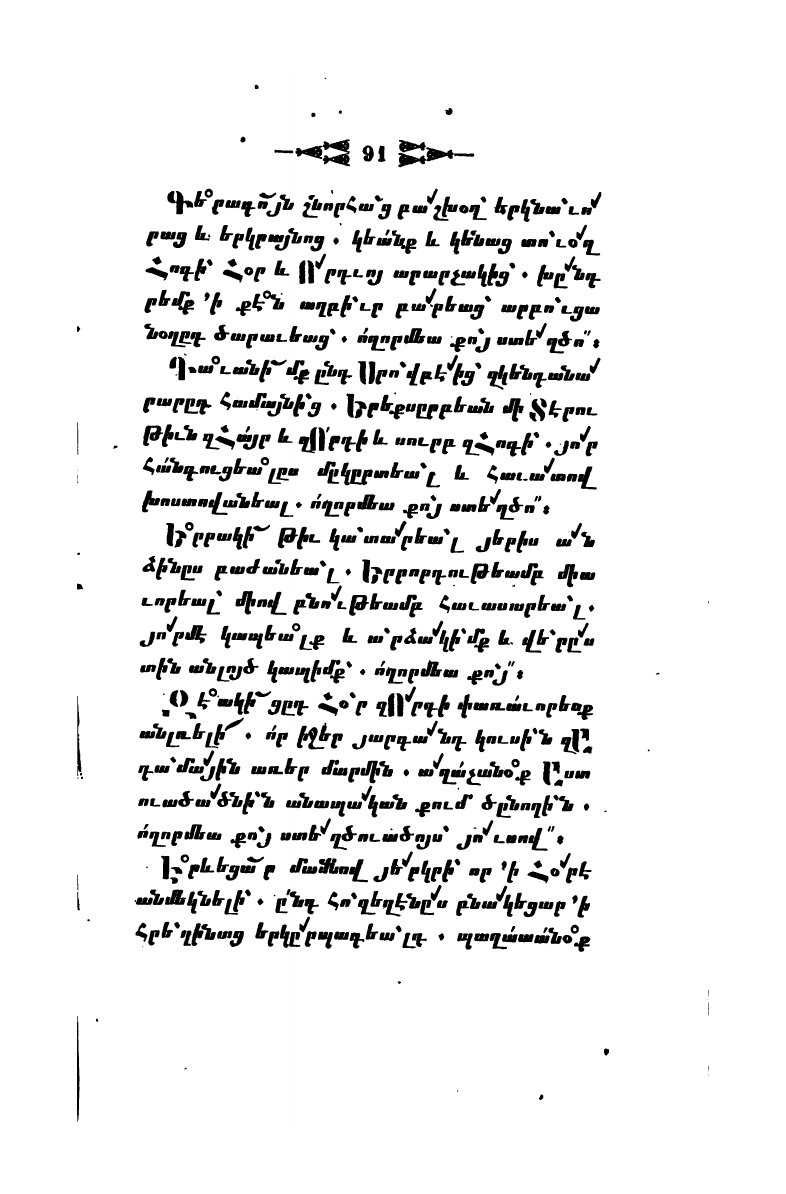 91
Գե՞րագո՜յն շնորհա՝ց բա՛շխօղ՝ երկնա՝ւո՛
րաց և երկրայնոց . կեանք և կենաց տո՝ւօ՛ղ
Հոգի՝ Հօր և Ո՛րդւոյ արարչակից՝ . խը՛նդ
րեմք ՚ի քէ՞ն աղբի՝ւր բա՛րեաց՝ արբո՝ւցա
նօղըդ ծարաւեաց՝ . ողորմեա քո՝յ ստե՛ղծո՝՝ :
Գա՞ւանի՜մք ընդ Սրո՝վբէ՛ից՝ զկենդանա՛
րարըդ Համայնի՝ց . Երեքսըրբեան մի Տէրու
թիւն զՀայր և զՈրդի և սուրբ զՀոգի՝ . յո՛ր
Հանգուցեա՞լըս մըկըրտեա՝լ և Հաւա՛տով
խոստովանեալ . ողորմեա քո՝յ ստե՛ղծո՝՝ :
Ե՞րրակի՜ թիւ կա՝տա՛րեա՝լ յերիս ա՛ն
ձինըս բաժանեա՝լ . Երրորդութեամբ միա
ւորեալ՝ միով բնո՛ւթեամբ Հաւասարեա՝լ .
յո՛րմէ կապեա՞լք և ա՝րձա՛կի՝մք և վե՝րը՛ս
տին անլոյծ կապիմք՝ . ողորմեա քո՝յ՝՝ :
Զ է՞ակի՜ցըդ Հօ՝ր զՈ՛րդի փառաւորեսք
անլռելի՛ . որ իջեր յարգա՛նդ կուսի՝ն զԱ
դա՝մա՛յին առեր մարմին . ա՛ղաչանօ՞ք Աստ
ուածա՛ծնի՝ն անապա՛կան քում՝ ծընողի՝ն .
ողորմեա քո՝յ ստե՛ղծուածոյս՝ յո՛ւսով՝՝ :
Ե՞րևեցա՜ր մասնով յե՛րկրի՝ որ ՚ի Հօ՛րէ
անմեկնելի՝ . ընդ Հո՝գեղէնը՛ս բնա՛կեցար ՚ի
Հրե՝ղինաց երկը՛րպագեա՝լդ . պաղատանօ՞ք